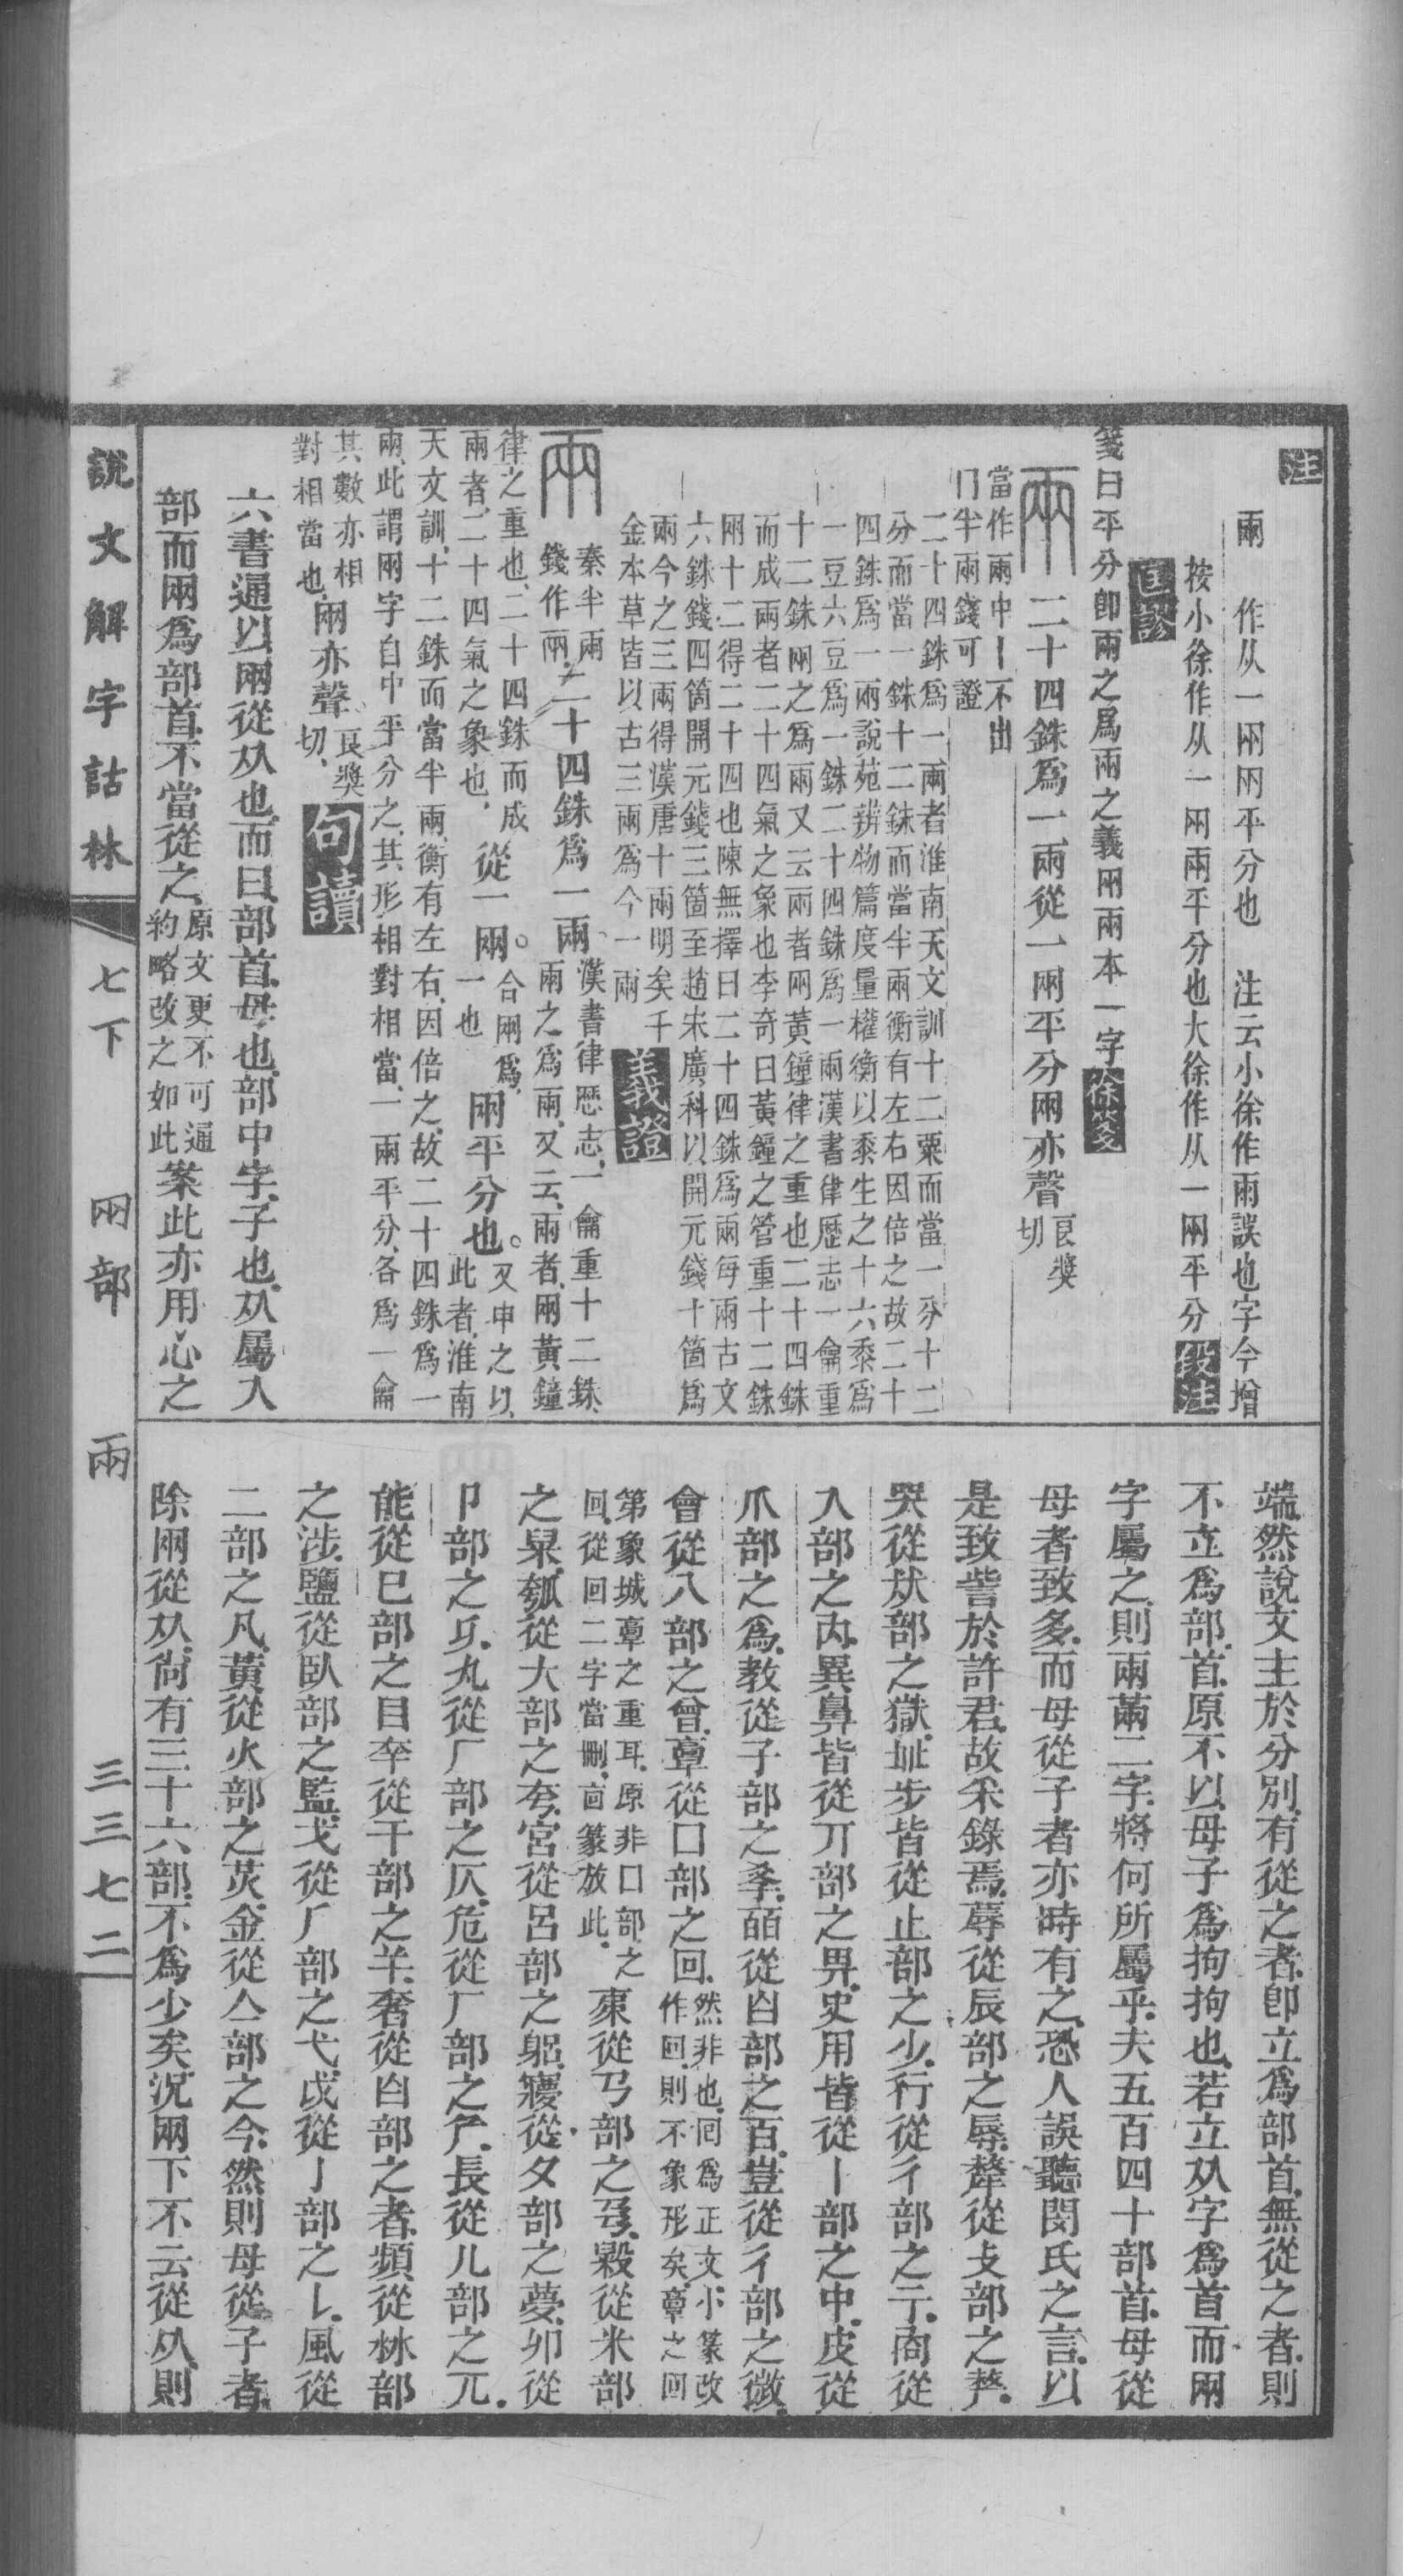 注
兩　作从一㒳㒳平分也　注云小徐作兩誤也字今增
按小徐作从一㒳兩平分也大徐作从一㒳平分段注
匡謬
箋曰平分卽㒳之爲兩之義㒳兩本一字徐箋
兩二十四銖爲一兩從一㒳平分㒳亦聲良獎切
當作兩中丨不出
冂半兩錢可證
二十四銖爲一兩者淮南天文訓十二粟而當一分十二
分而當一銖十二銖而當半兩衡有左右因倍之故二十
四銖爲一兩說苑辨物篇度量權衡以黍生之十六黍爲
一豆六豆爲一銖二十四銖爲一兩漢書律歷志一龠重
十二銖㒳之爲兩又云兩者㒳黃鐘律之重也二十四銖
而成兩者二十四氣之象也李奇曰黃鐘之管重十二銖
㒳十二得二十四也陳無擇曰二十四銖爲兩每兩古文
六銖錢四箇開元錢三箇至趙宋廣科以開元錢十箇爲
兩今之三兩得漢唐十兩明矣千
金本草皆以古三兩爲今一兩義證
兩秦半兩錢作兩二十四銖爲一兩。漢書律歷志、一龠重十二銖、
㒳之爲兩、又云、兩者、㒳黃鐘
律之重也、二十四銖而成
兩者、二十四氣之象也、從一㒳。合㒳爲一也㒳平分也。又申之以
此者、淮南
天文訓、十二銖而當半兩、衡有左右、因倍之、故二十四銖爲一
兩、此謂㒳字自中平分之、其形相對相當、一兩平分、各爲一龠
其數亦相
對相當也、㒳亦聲。良獎切、句讀
六書通以㒳從从也、而曰、部首、母也、部中字、子也、从屬入
部而㒳爲部首、不當從之、原文更不可通約略改之如此案此亦用心之
端、然說文主於分別、有從之者、卽立爲部首、無從之者、則
不立爲部首、原不以母子爲拘拘也、若立从字爲首而㒳
字屬之、則兩㒼二字、將何所屬乎、夫五百四十部首、母從
母者致多、而母從子者亦時有之、恐人誤聽閔氏之言、以
是致訾於許君、故采錄焉、蓐從辰部之辱、犛從攴部之𠩺、
哭從㹜部之獄、址步皆從止部之少、行從彳部之亍、㕯從
入部之內、異鼻皆從丌部之畀、史用皆從丨部之中、皮從
爪部之爲、教從子部之𡥈、皕從白部之百、豈從彳部之微、
會從八部之曾、㐭從囗部之回、然非也、回爲正文、小篆改
作回、則不象形矣、㐭之回
第象城𩫖之重耳、原非囗部之
回、從回二字當刪、啚篆放此、㯥從𢎘部之𢎘、毇從米部
之臬、瓠從大部之夸、宮從呂部之躳、㝱從夕部之夢、卯從
卩部之𠨎、丸從厂部之仄、危從厂部之厃、長從儿部之兀、
能從巳部之㠯、㚔從干部之𢆉、奢從白部之者、頻從沝部
之涉、鹽從臥部之監、戈從厂部之弋、戉從亅部之𠄌、風從
二部之凡、黃從火部之炗、金從亼部之今、然則母從子者、
除㒳從从、尙有三十六部、不爲少矣、況㒳下不云從从、則
說文解字詁林　七下　㒳部　兩　三三七二